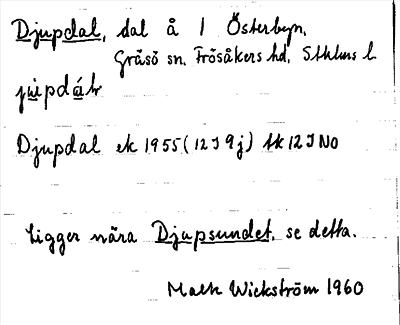 Djupdal, dal å 1 Österbyn,
Gräsö sn. Frösåkers hd, Sthlms l.
Djupdal ek 1955 (12J 9j) tk 12J NO
Ligger nära Djupsundet, se detta.
Mats Wickström 1960